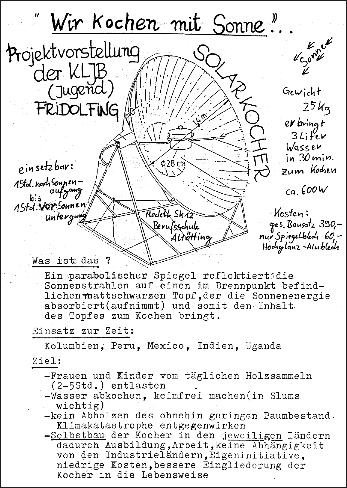 "Wir Kochen mit Sonne"...
Projektvorstellung
der KLJB
(Jugend)
FRIDOLFING
SOLARKOCHER
Sonne
Gewicht
25 kg
erbringt
3 Liter
Wasser
in 30 min.
zum Kochen
ca. 600 W
Kosten:
ges. Bausatz 390,-
nur Spiegelblech 60,-
Hochglanz-Alublech
einsetzbar:
1Std. nach Sonnen-
aufgang
bis
1Std. vor Sonnen
untergang
Modell SK12
Berufsschule
Altötting
Was ist das ?
Ein parabolischer Spiegel reflektiert die
Sonnenstrahlen auf einen im Brennpunkt befind-
lichen mattschwarzen Topf, der die Sonnenenergie
absorbiert(aufnimmt) und somit den Inhalt
des Topfes zum Kochen bringt.
Einsatz zur Zeit:
Kolumbien, Peru, Mexico, Indien, Uganda
Ziel:
-Frauen und Kinder vom täglichen Holzsammeln
(2-5Std.) entlasten
-Wasser abkochen, keimfrei machen(in Slums
wichtig)
-kein Abholzen des ohnehin geringen Baumbestand.
Klimakatastrophe entgegenwirken
-Selbstbau der Kocher in den jeweiligen Ländern
dadurch Ausbildung,Arbeit,keine Abhängigkeit
von den Industrieländern,Eigeninitiative,
niedrige Kosten,bessere Eingliederung der
Kocher in die Lebensweise